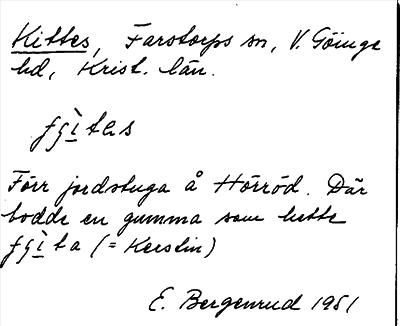 Kittes, Farstorps sn, V. Göinge
hd, Krist. län.
ʄʒìtas
Förr jordstuga å Hörröd. Där
bodde en gumma som hette
ʄʒìta (= Kerstin)
E. Bergenrud 1951